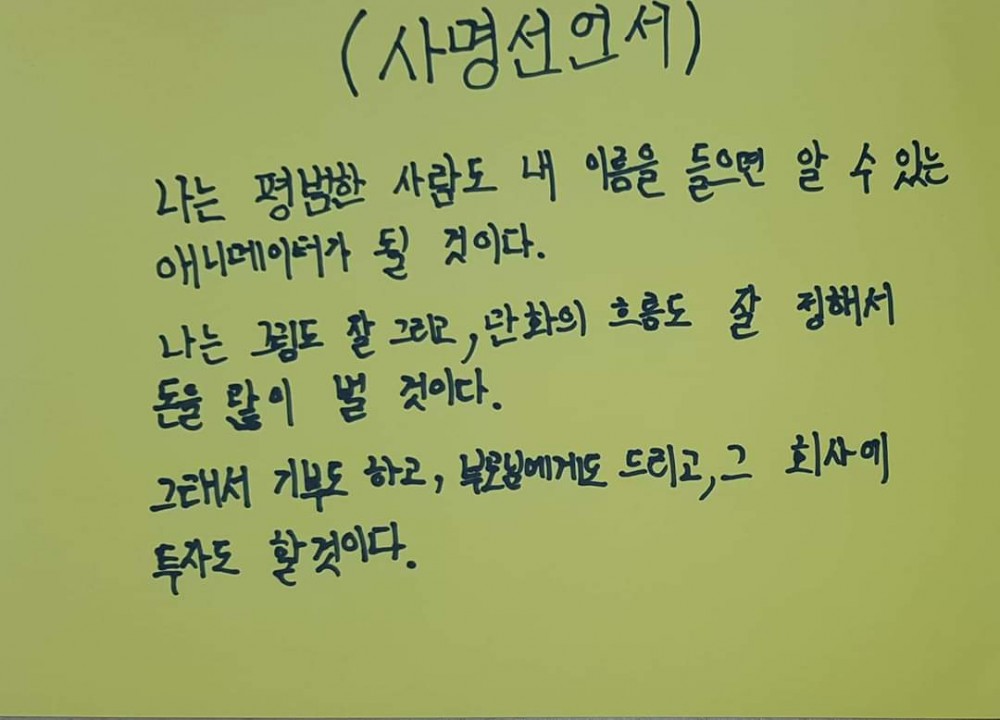 (사명선언서)
나는 평범한 사람도 내 이름을 들으면 알 수 있는
애니메이터가 될 것이다.
나는 그림도 잘 그리고, 만화의 흐름도 잘 정해서
돈을 많이 벌 것이다.
그래서 기부도 하고, 부모님에게도 드리고, 그 회사에
투자도 할것이다.